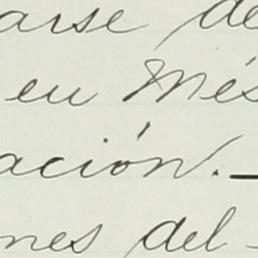 arse de
en Més
ación.—
nes del